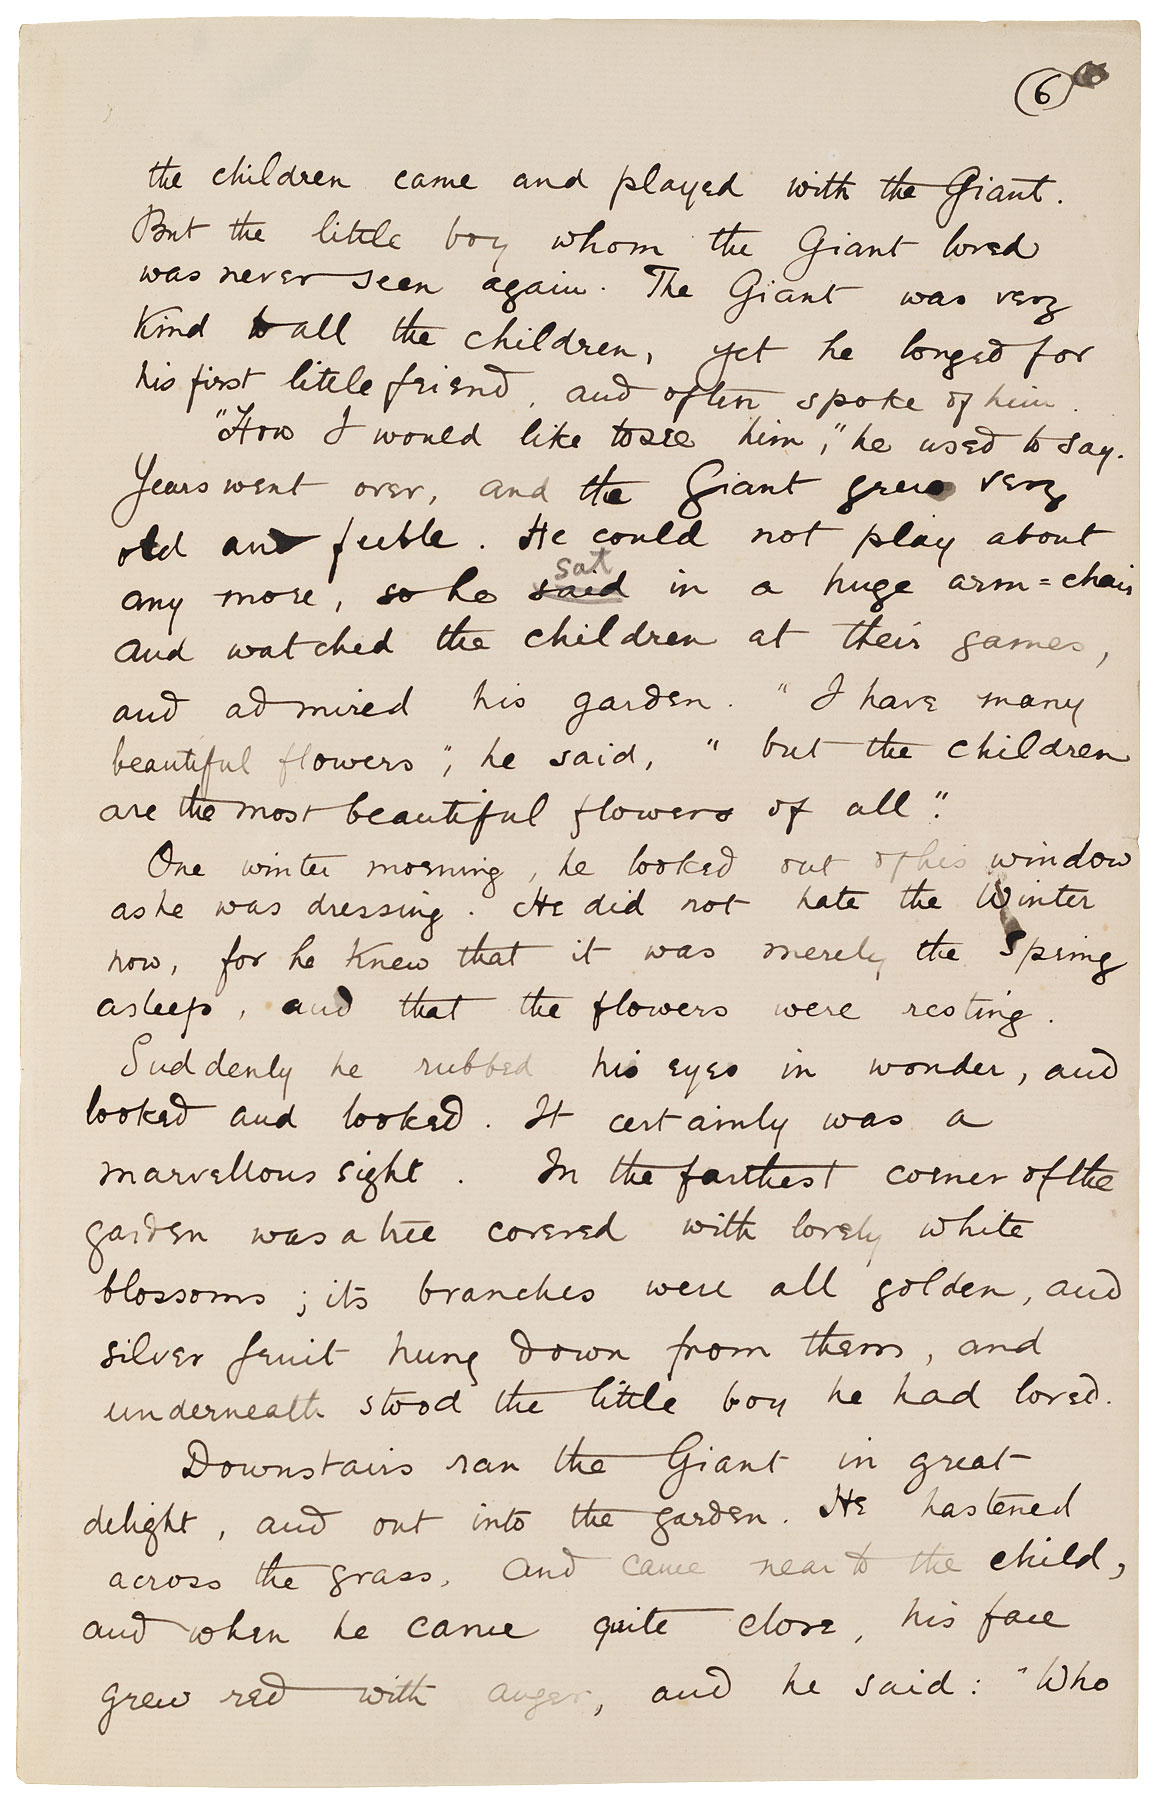 6
the children came and played with the Giant.
But the little boy whom the Giant loved
was never seen again. The Giant was very
kind to all the children, yet he longed for
his first little friend, and often spoke of him.
"How I would like to see him," he used to say.
Years went over, and the Giant grew very
old and feeble. He could not play about
sat
any more, so he said in a huge arm=chair
and watched the children at their games,
and admired his garden. "I have many
beautiful flowers", he said, "but the children
are the most beautiful flowers of all".
One winter morning, he looked out of his window
as he was dressing. He did not hate the Winter
now, for he knew that it was merely the Spring
asleep, and that the flowers were resting.
Suddenly he rubbed his eyes in wonder, and
looked and looked. It certainly was a
marvellous sight. In the farthest corner of the
garden was a tree covered with lovely white
blossoms; its branches were all golden, and
silver fruit hung down from them, and
underneath stood the little boy he had loved.
Downstairs ran the Giant in great
delight, and out into the garden. He hastened
across the grass, and came near to the child,
and when he came quite close, his face
grew red with anger, and he said: "Who